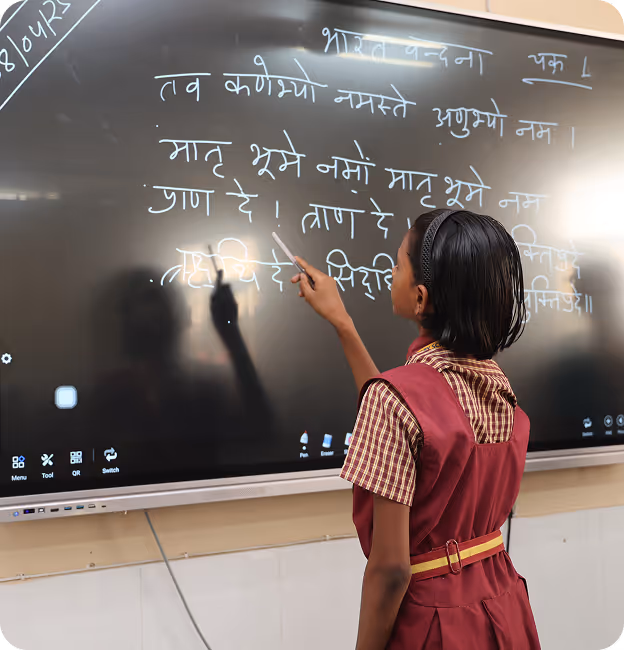 8/04/25
भारत वन्दना चक्र 1
तव कणेभ्यो नमस्ते अणुभ्यो नमः ।
मातृ भूमे नमों मातृ भूमे नम
प्राण दे ! त्राण दे !
दे सिद्धि
Menu Tool QR Switch Pen Eraser